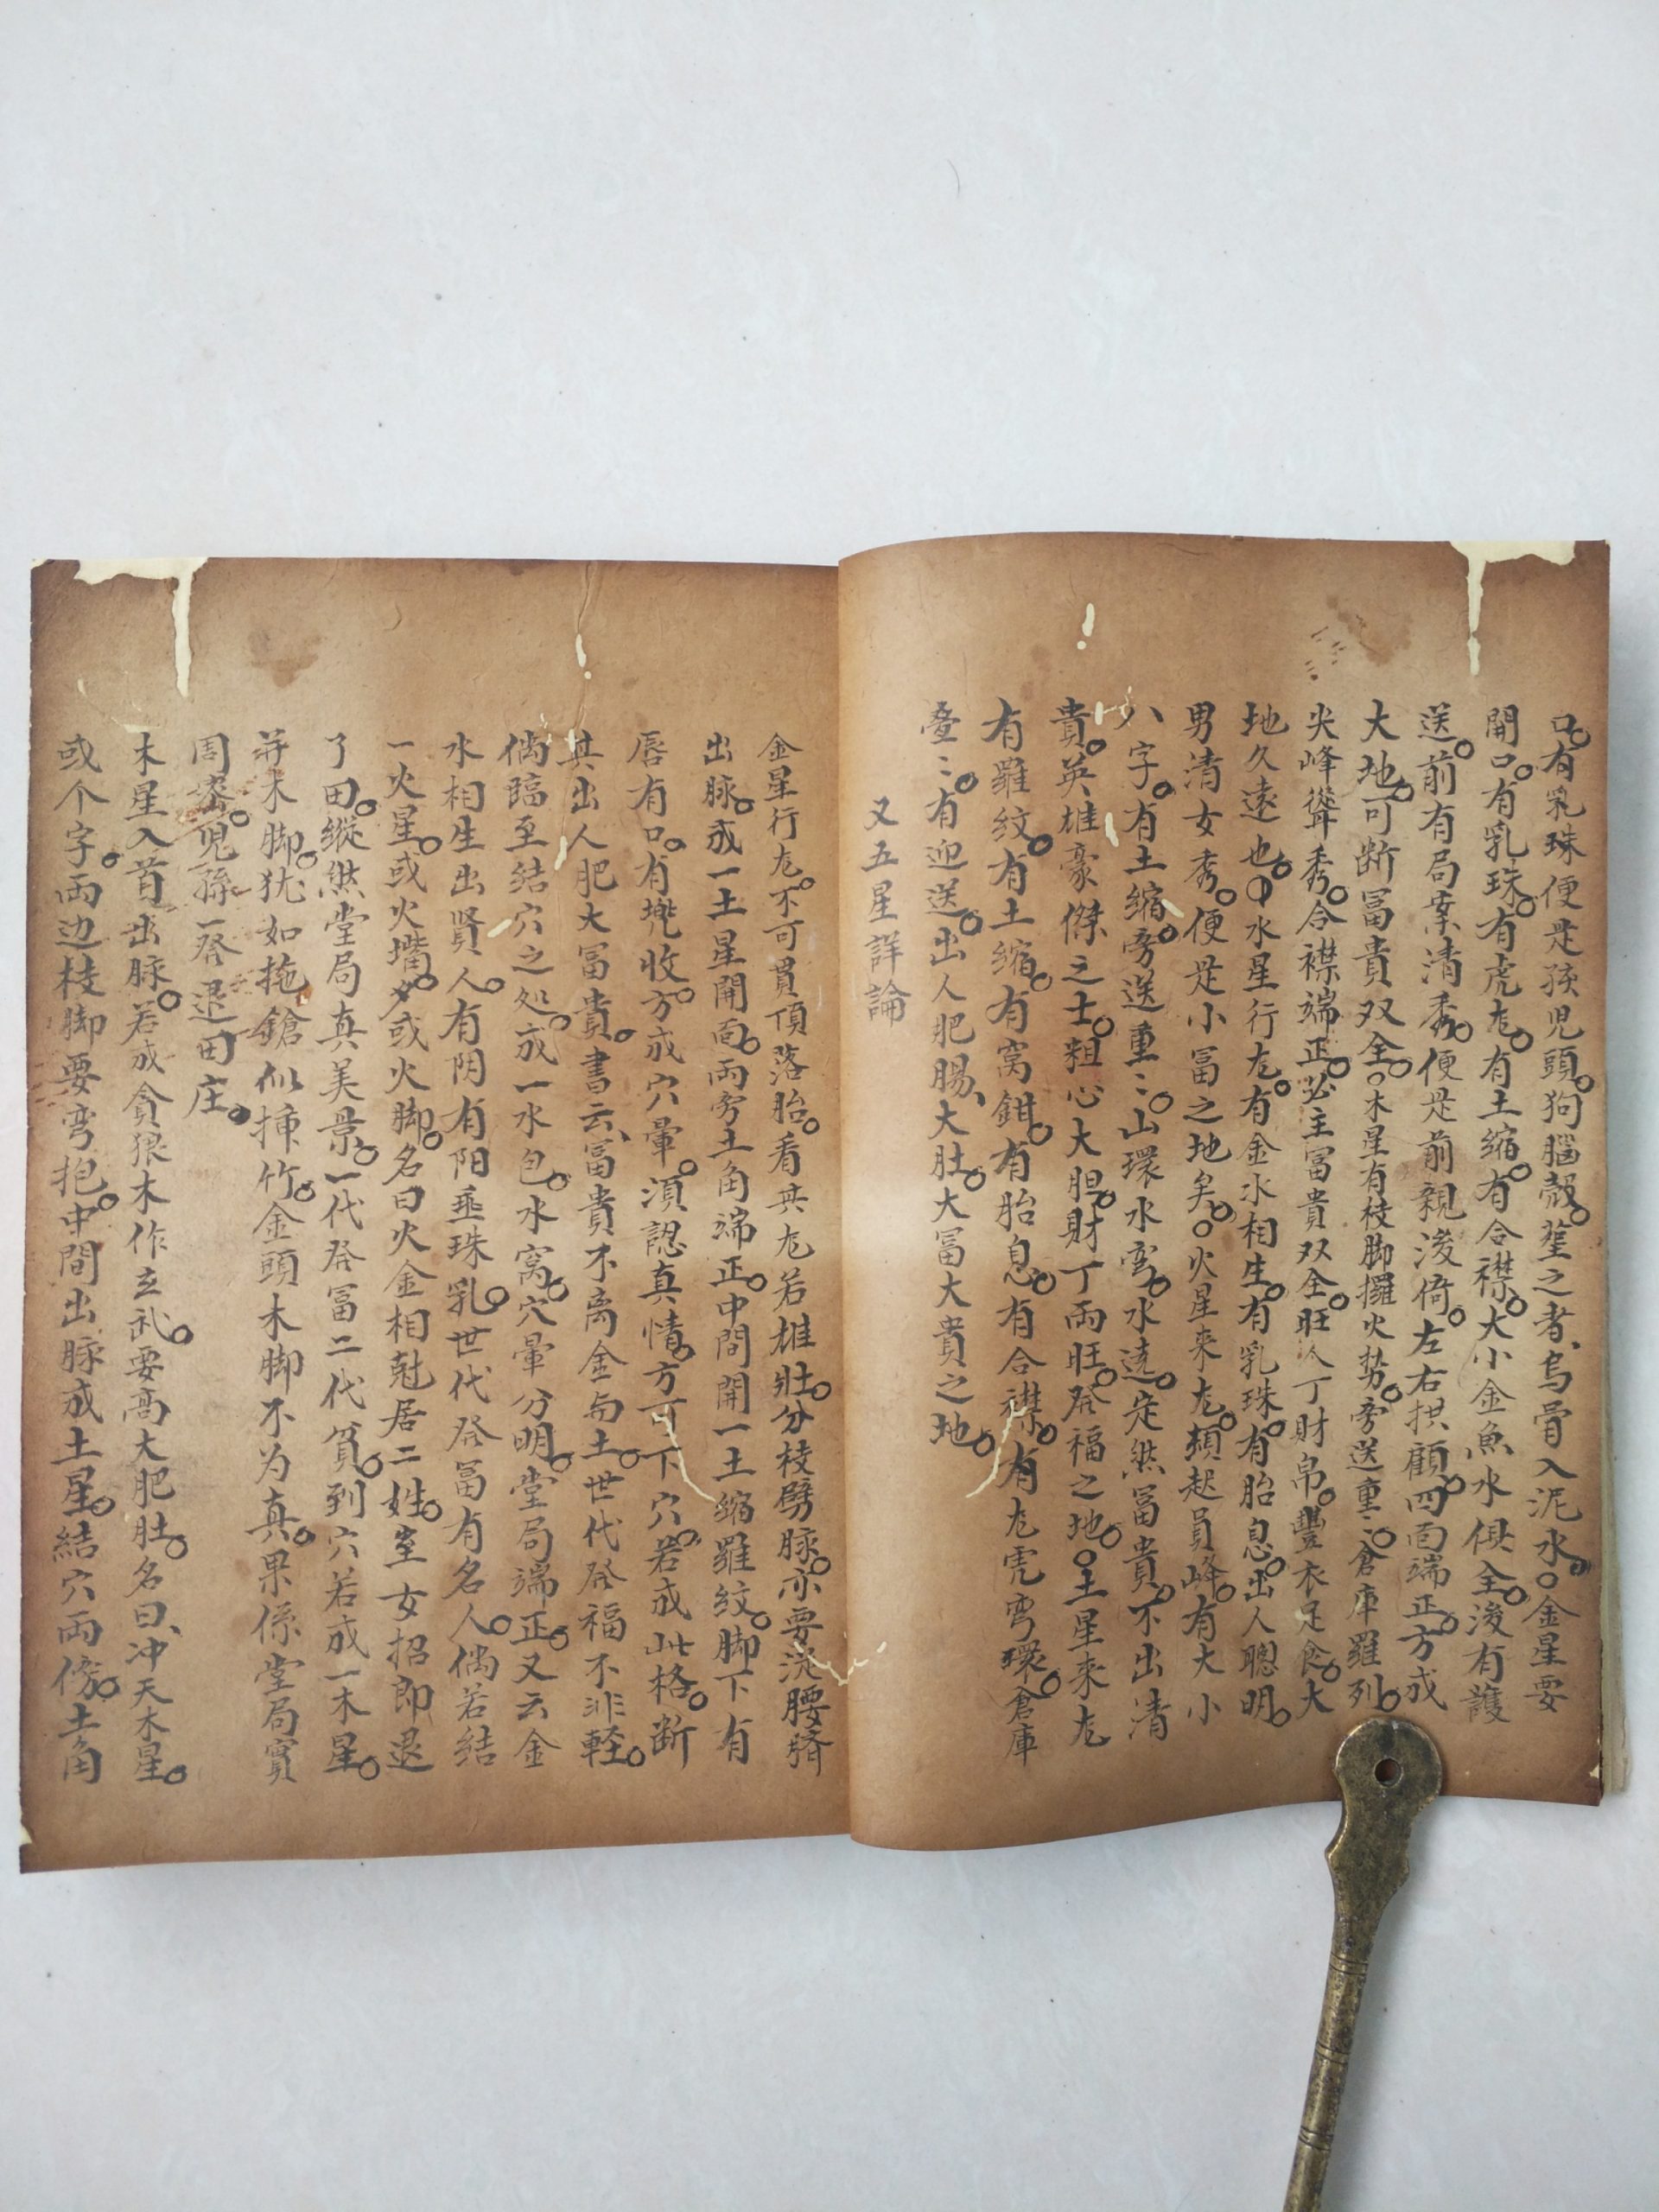 口。有乳珠便是孩児頭。狗腦殼。塋之者、烏骨入泥水。○金星要
開口。有乳珠。有虎尨。有土縮。有合襟。大小金魚水俱全。後有護
送。前有局案清秀。便是前親後倚。左右拱顧。四面端正。方成
大地。可断冨貴双全。○木星有枝脚攞火势。旁送重〻。倉庫羅列。
尖峰聳秀。合襟端正。必主冨貴双全。旺人丁財帛。豐衣足食。大
地久遠也。○水星行尨。有金水相生。有乳珠。有胎息。出人聰明。
男清女秀。便是小冨之地矣。○火星来尨。頻起員峰。有大小
八字。有土縮。旁送重〻。山環水弯。水遶。定然冨貴。不出清
貴。英雄豪傑之士。粗心大胆。財丁両旺。発福之地。○土星来尨
有羅纹。有土縮。有窝鉗。有胎息。有合襟。有尨虎弯環。倉庫
疊〻。有迎送。出人肥腸、大肚。大冨大貴之地。
又五星詳論
金星行尨。不可貫頂落胎。看其尨若雄壯。分枝劈脉。亦要浇腰臍
出脉。成一土星開面。両旁土角端正。中間開一土縮羅纹。脚下有
唇有口。有兠收。方成穴暈。湏認真情。方可下穴。若成此格。断
其出人肥大冨貴。書云、冨貴不离金与土。世代発福不非軽。
偶臨至結穴之処。成一水包。水窝。穴暈分明。堂局端正。又云金
水相生出賢人。有阴有阳垂珠乳。世代発冨有名人。偶若結
一火星。或火嘴。或火脚。名曰火金相尅居二姓。室女招郎退
了田。縱然堂局真美景。一代発冨二代貧。到穴若成一木星。
并木脚。犹如拖鎗似插竹。金頭木脚不为真。果係堂局實
周密。児孫一発退田庄。
木星入首出脉。若成貪狠木作玄武。要高大肥肚。名曰、冲天木星。
或个字。両边枝脚要弯抱。中間出脉成土星。結穴両傍。土角